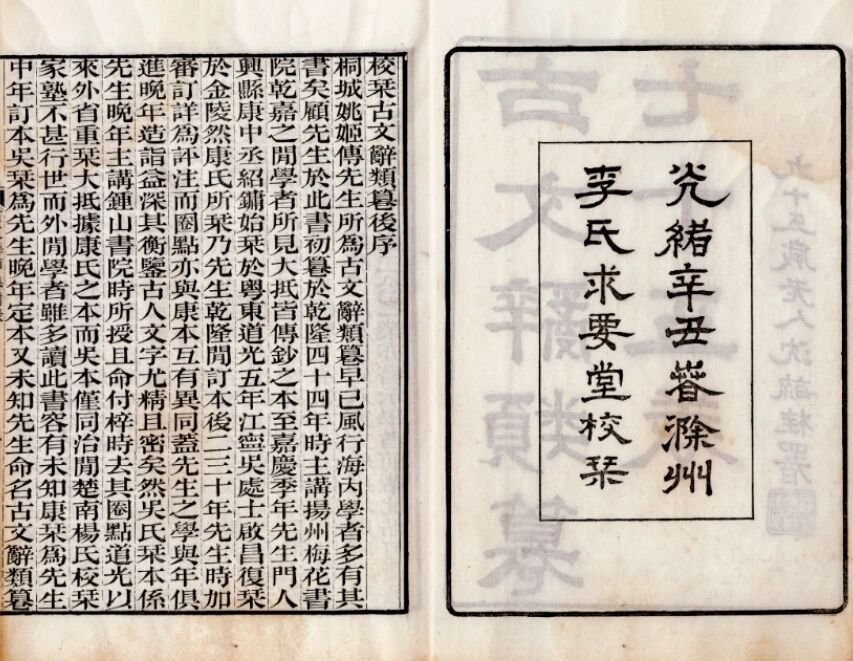 九十五歲老人沈毓桂署
光緒辛丑春滁州
李氏求要堂校栞
七十五卷
古文辭類篹
校栞古文辭類篹後序
桐城姚姬傳先生所爲古文辭類篹早已風行海內學者多有其
書矣顧先生於此書初篹於乾隆四十四年時主講揚州梅花書
院乾嘉之閒學者所見大抵皆傳鈔之本至嘉慶季年先生門人
興縣康中丞紹鏞始栞於粵東道光五年江寧吳處士啟昌復栞
於金陵然康氏所栞乃先生乾隆閒訂本後二三十年先生時加
審訂詳爲評注而圈點亦與康本互有異同蓋先生之學與年俱
進晚年造詣益深其衡鑒古人文字尤精且密矣然吳氏栞本係
先生晚年主講鍾山書院時所授且命付梓時去其圈點道光以
來外省重栞大抵據康氏之本而吳本僅同治閒楚南楊氏校栞
家塾不甚行世而外閒學者雖多讀此書容有未知康栞爲先生
中年訂本吳栞爲先生晚年定本又未知先生命名古文辭類篹